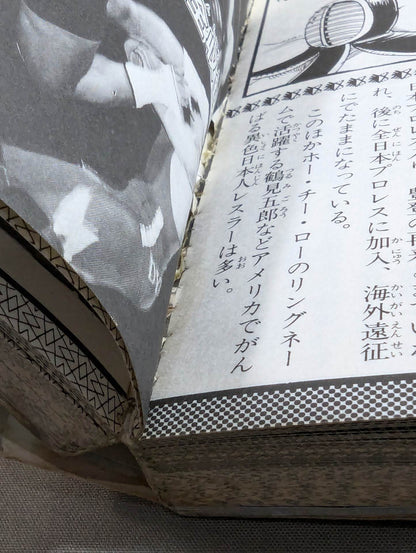 れ、後に全日本プロレスに加入、海外遠征
にでたままになっている。
このほかホー・チー・ローのリングネー
ムで活躍する鶴見五郎などアメリカでがん
ばる異色日本人レスラーは多い。